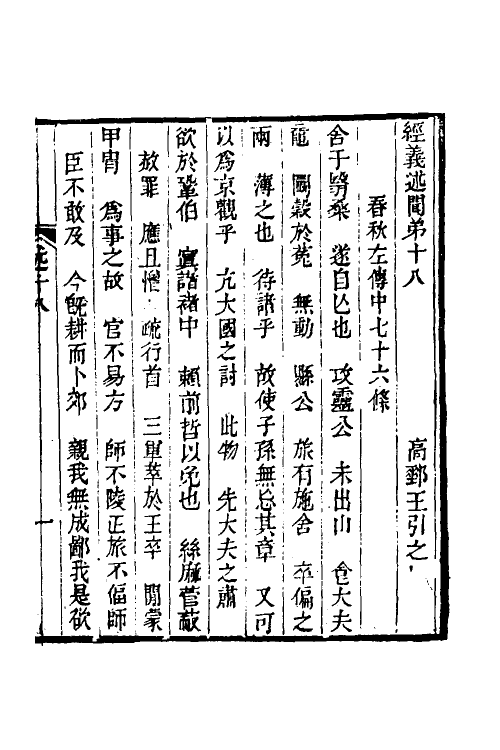 經義述聞弟十八　高郵王引之
春秋左傳中七十六條
舍于翳桑　遂自亡也　攻靈公　未出山　倉大夫
竈　鬬縠於菟　無動　縣公　旅有施舍　卒偏之
兩　薄之也　待諸乎　故使子孫無忘其章　又可
以爲京觀乎　亢大國之討　此物　先大夫之肅
欲於鞏伯　寘諸褚中　賴前哲以免也　絲麻菅蒯
赦罪　應且憎　疏行首　三軍萃於王卒　閒蒙
甲胄　爲事之故　官不易方　師不陵正旅不偪師
臣不敢及　今旣耕而卜郊　親我無成鄙我是欲
卷十八
一